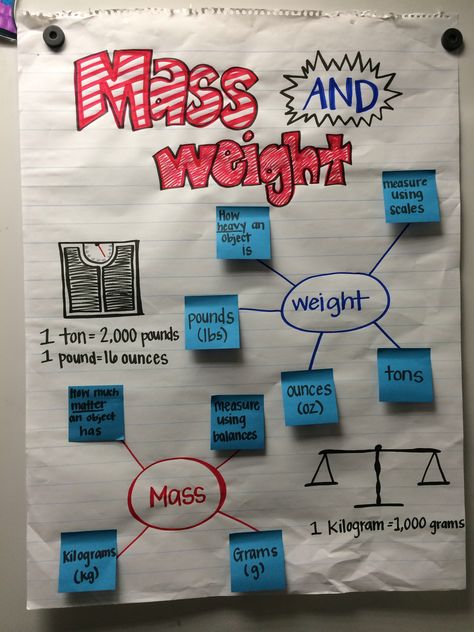 Mass
AND
weight
measure
using
scales
How
heavy an
object
is
weight
pounds
(lbs)
1 ton = 2,000 pounds
1 pound=16 ounces
ounces
(oz)
tons
How much
matter
an object
has
Measure
using
balances
Mass
1 Kilogram =1,000 grams
Kilograms
(kg)
Grams
(g)